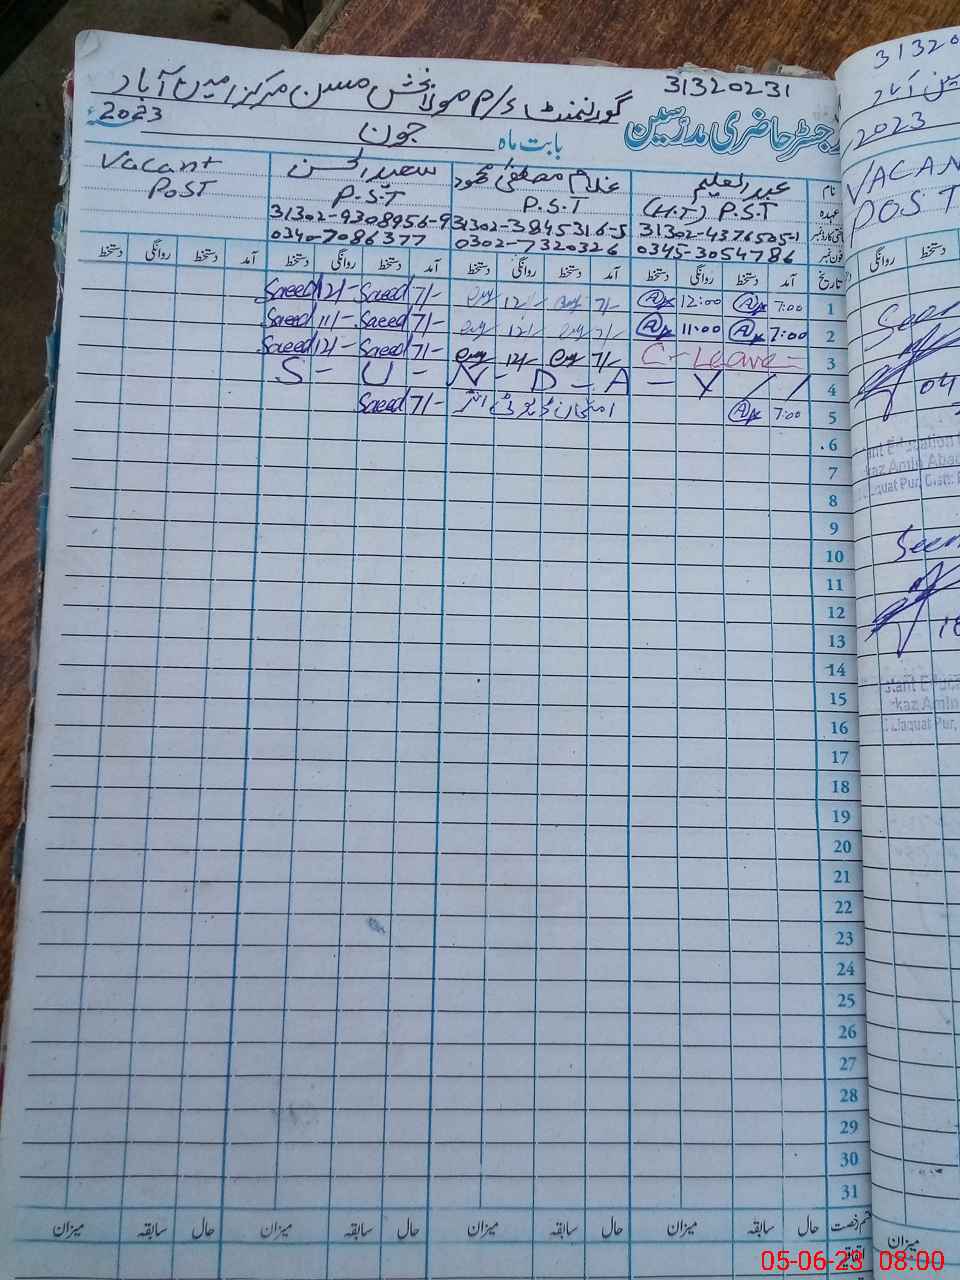 31320231
گورنمنٹ م/s مولا بخش مسن مرکز امین آباد
رجسٹر حاضری مدرسین بابت ماہ جون 2023ء
نام عبدالعلیم غلام مصطفیٰ محمود سعید الحسن Vacant
عہدہ (H.T) P.S.T P.S.T P.S.T POST
31302-4376505-1 31302-3845316-5 31302-9308956-9
فون نمبر 0345-3054786 0302-7320326 0340-7086377
تاریخ آمد دستخط روانگی دستخط آمد دستخط روانگی دستخط آمد دستخط روانگی دستخط آمد دستخط روانگی دستخط
1 7:00 12:00 7/- 12/- 7/- Saeed 12/- Saeed
2 7:00 11:00 7/- 12/- 7/- Saeed 11/- Saeed
3 C-Leave 7/- 12/- 7/- Saeed 12/- Saeed
4 S - U - N - D - A - Y //
5 7:00 امتحان ڈیوٹی 7/- Saeed
6
7
8
9
10
11
12
13
14
15
16
17
18
19
20
21
22
23
24
25
26
27
28
29
30
31
قسم رخصت حال سابقہ میزان حال سابقہ میزان حال سابقہ میزان حال سابقہ میزان
اتفاقیہ
31320
2023
VACAN
POST
روانگی دستخط
Seen
04
Seen
18
میزان
05-06-23 08:00